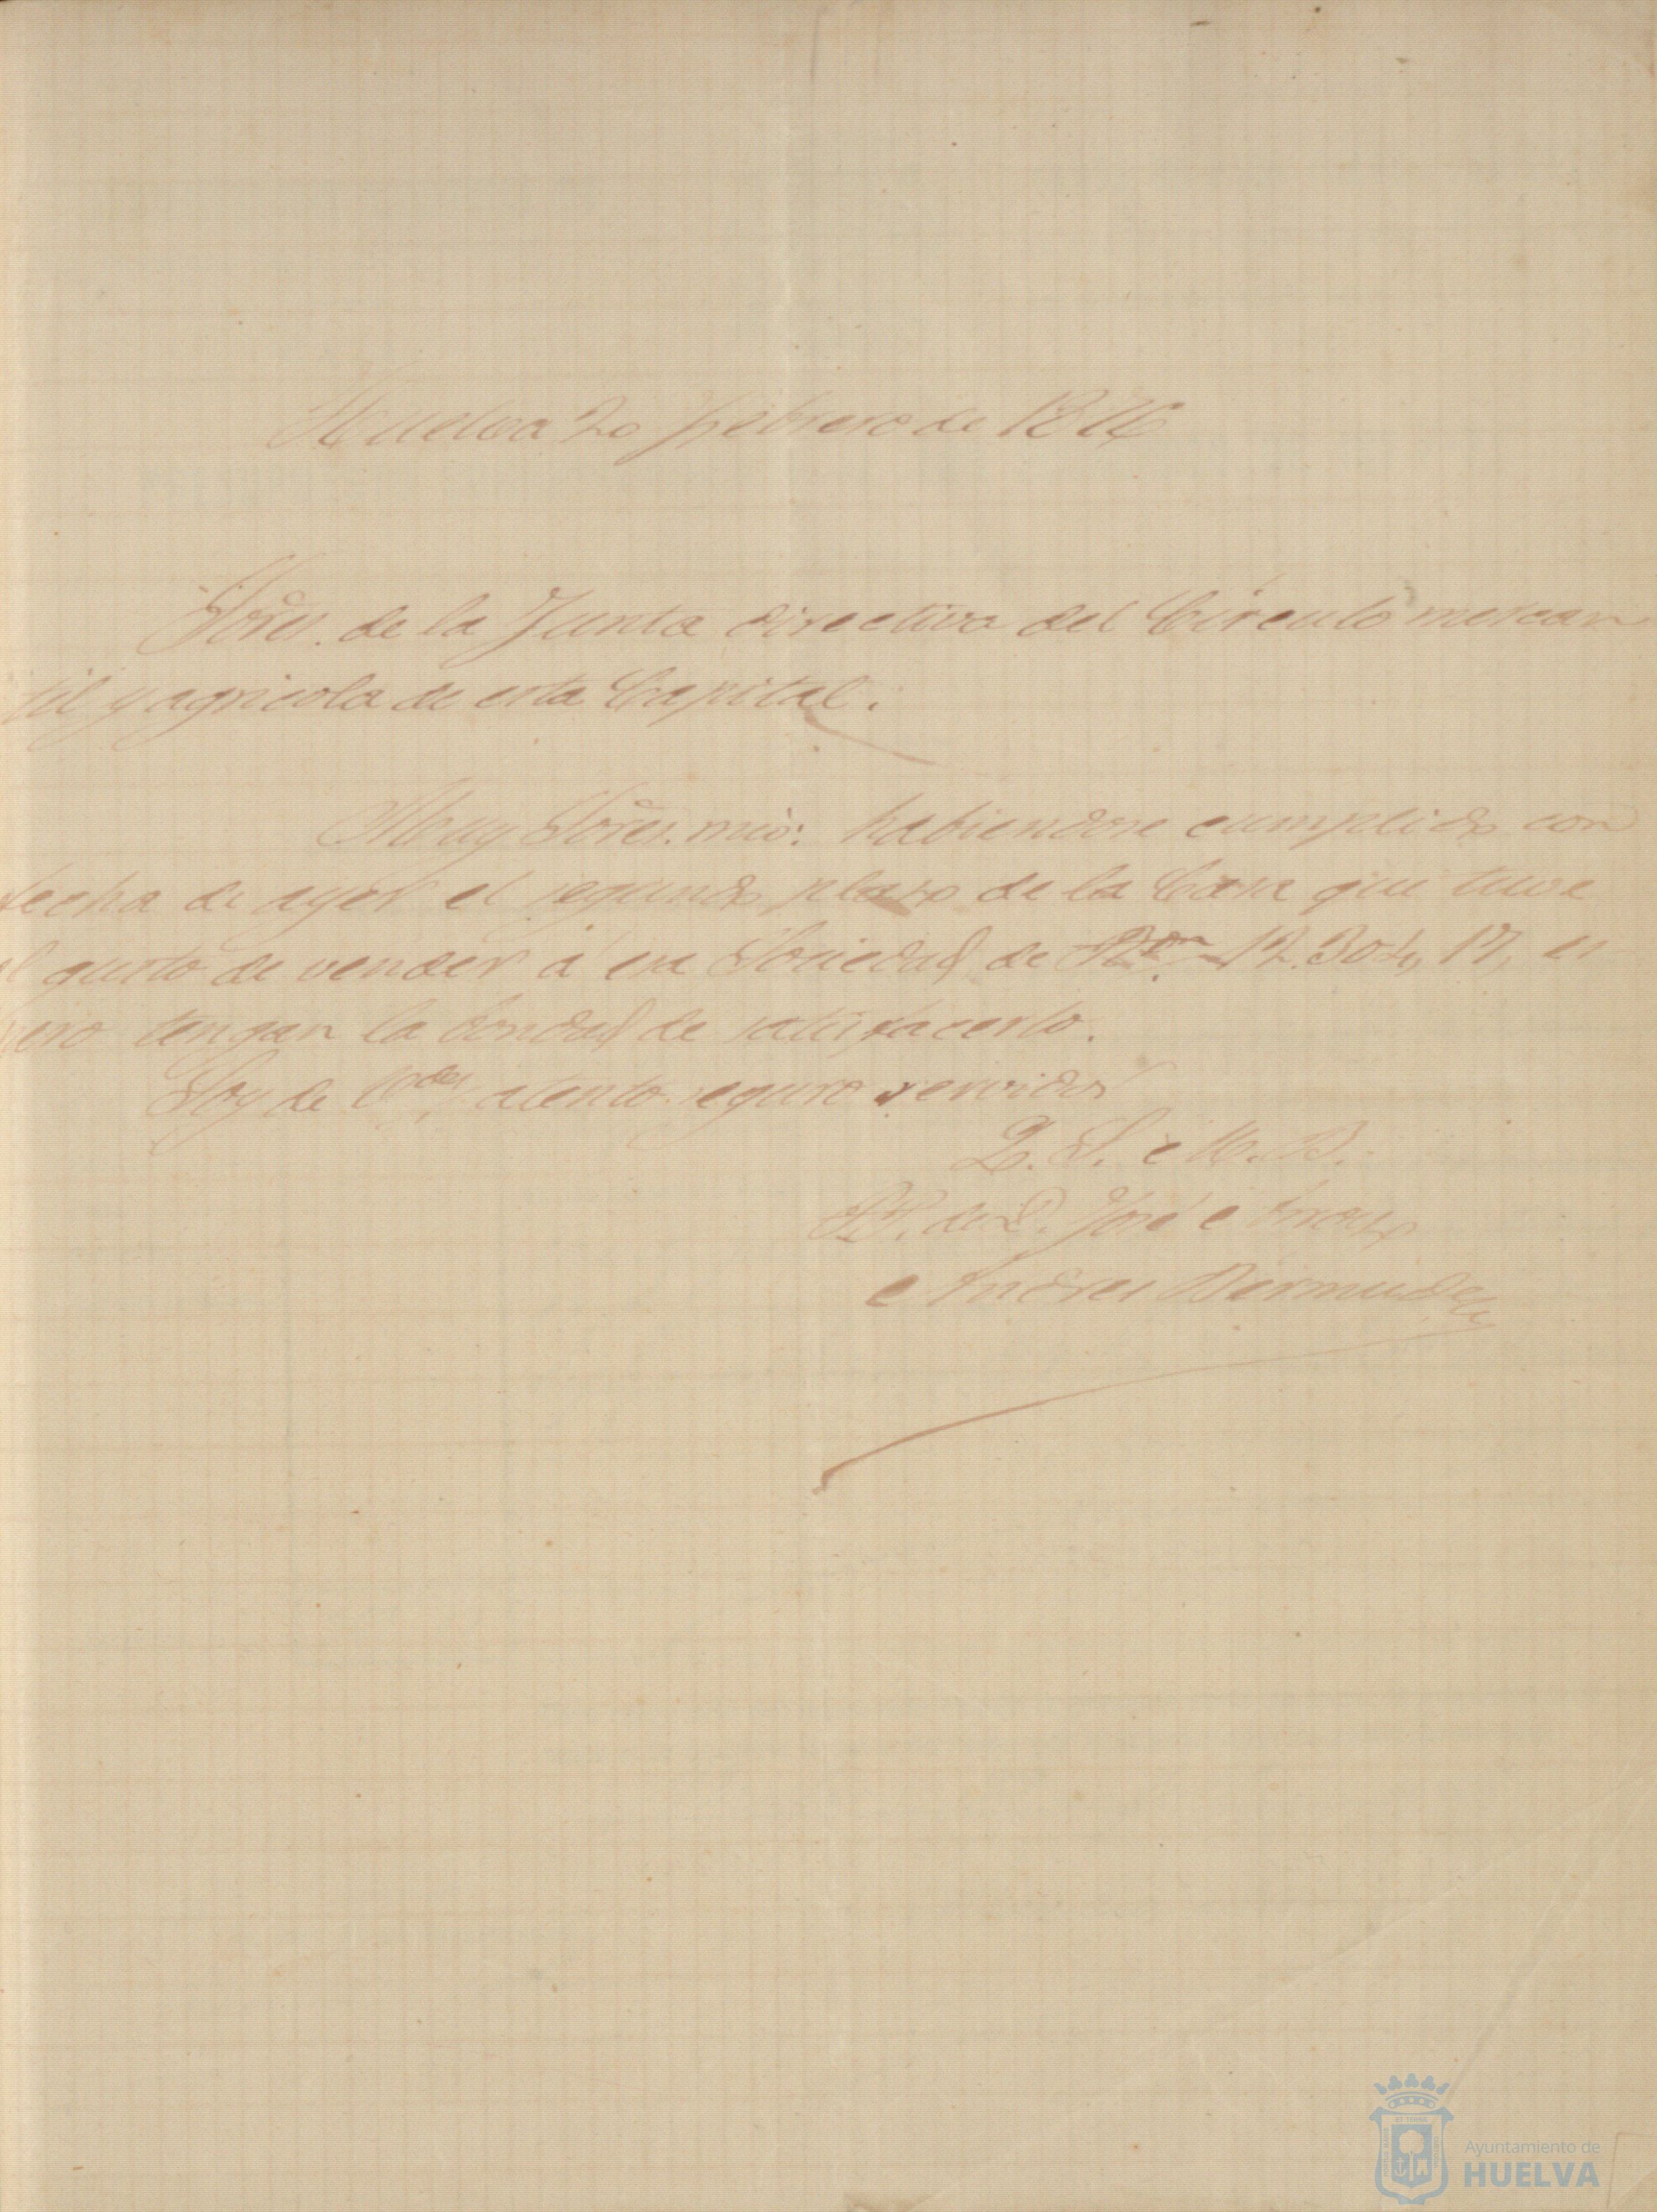 Huelva 20 febrero de 1876
Sores. de la Junta directiva del Círculo mercan
til y agricola de esta Capital.
Muy Sores. mio: habiendose cumplido con
fecha de ayer el segundo plazo de la Casa que tuve
el gusto de vender á esa Sociedad de Rvon 12.304,17, es
pero tengan la bondad de satisfacerlo.
Soy de Vdes. atento seguro servidor
Q. S. M. B.
P.P. de D. José
Andres Bermudez
Ayuntamiento de
HUELVA